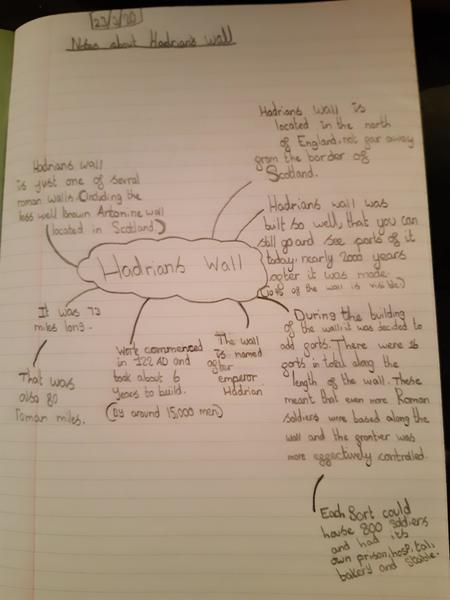 23/3/20
Notes about Hadrian's wall
Hadrians wall is
located in the north
of England, not far away
from the border of
Scotland.
Hadrians wall
is just one of sevral
roman walls. (Including the
less well known Antonine wall
located in Scotland.)
Hadrians wall was
built so well, that you can
still go and see parts of it
today, nearly 2000 years
after it was made.
(10% of the wall is visible.)
Hadrians Wall
It was 73
miles long.
That was
also 80
roman miles.
Work commenced
in 122 AD and
took about 6
years to build.
(By around 15,000 men)
The wall
is named
after
emperor
Hadrian
During the building
of the wall it was decided to
add forts. There were 16
forts in total along the
length of the wall. These
meant that even more Roman
soldiers were based along the
wall and the frontier was
more effectively controlled.
Each fort could
house 800 soldiers
and had its
own prison, hospital,
bakery and stable.